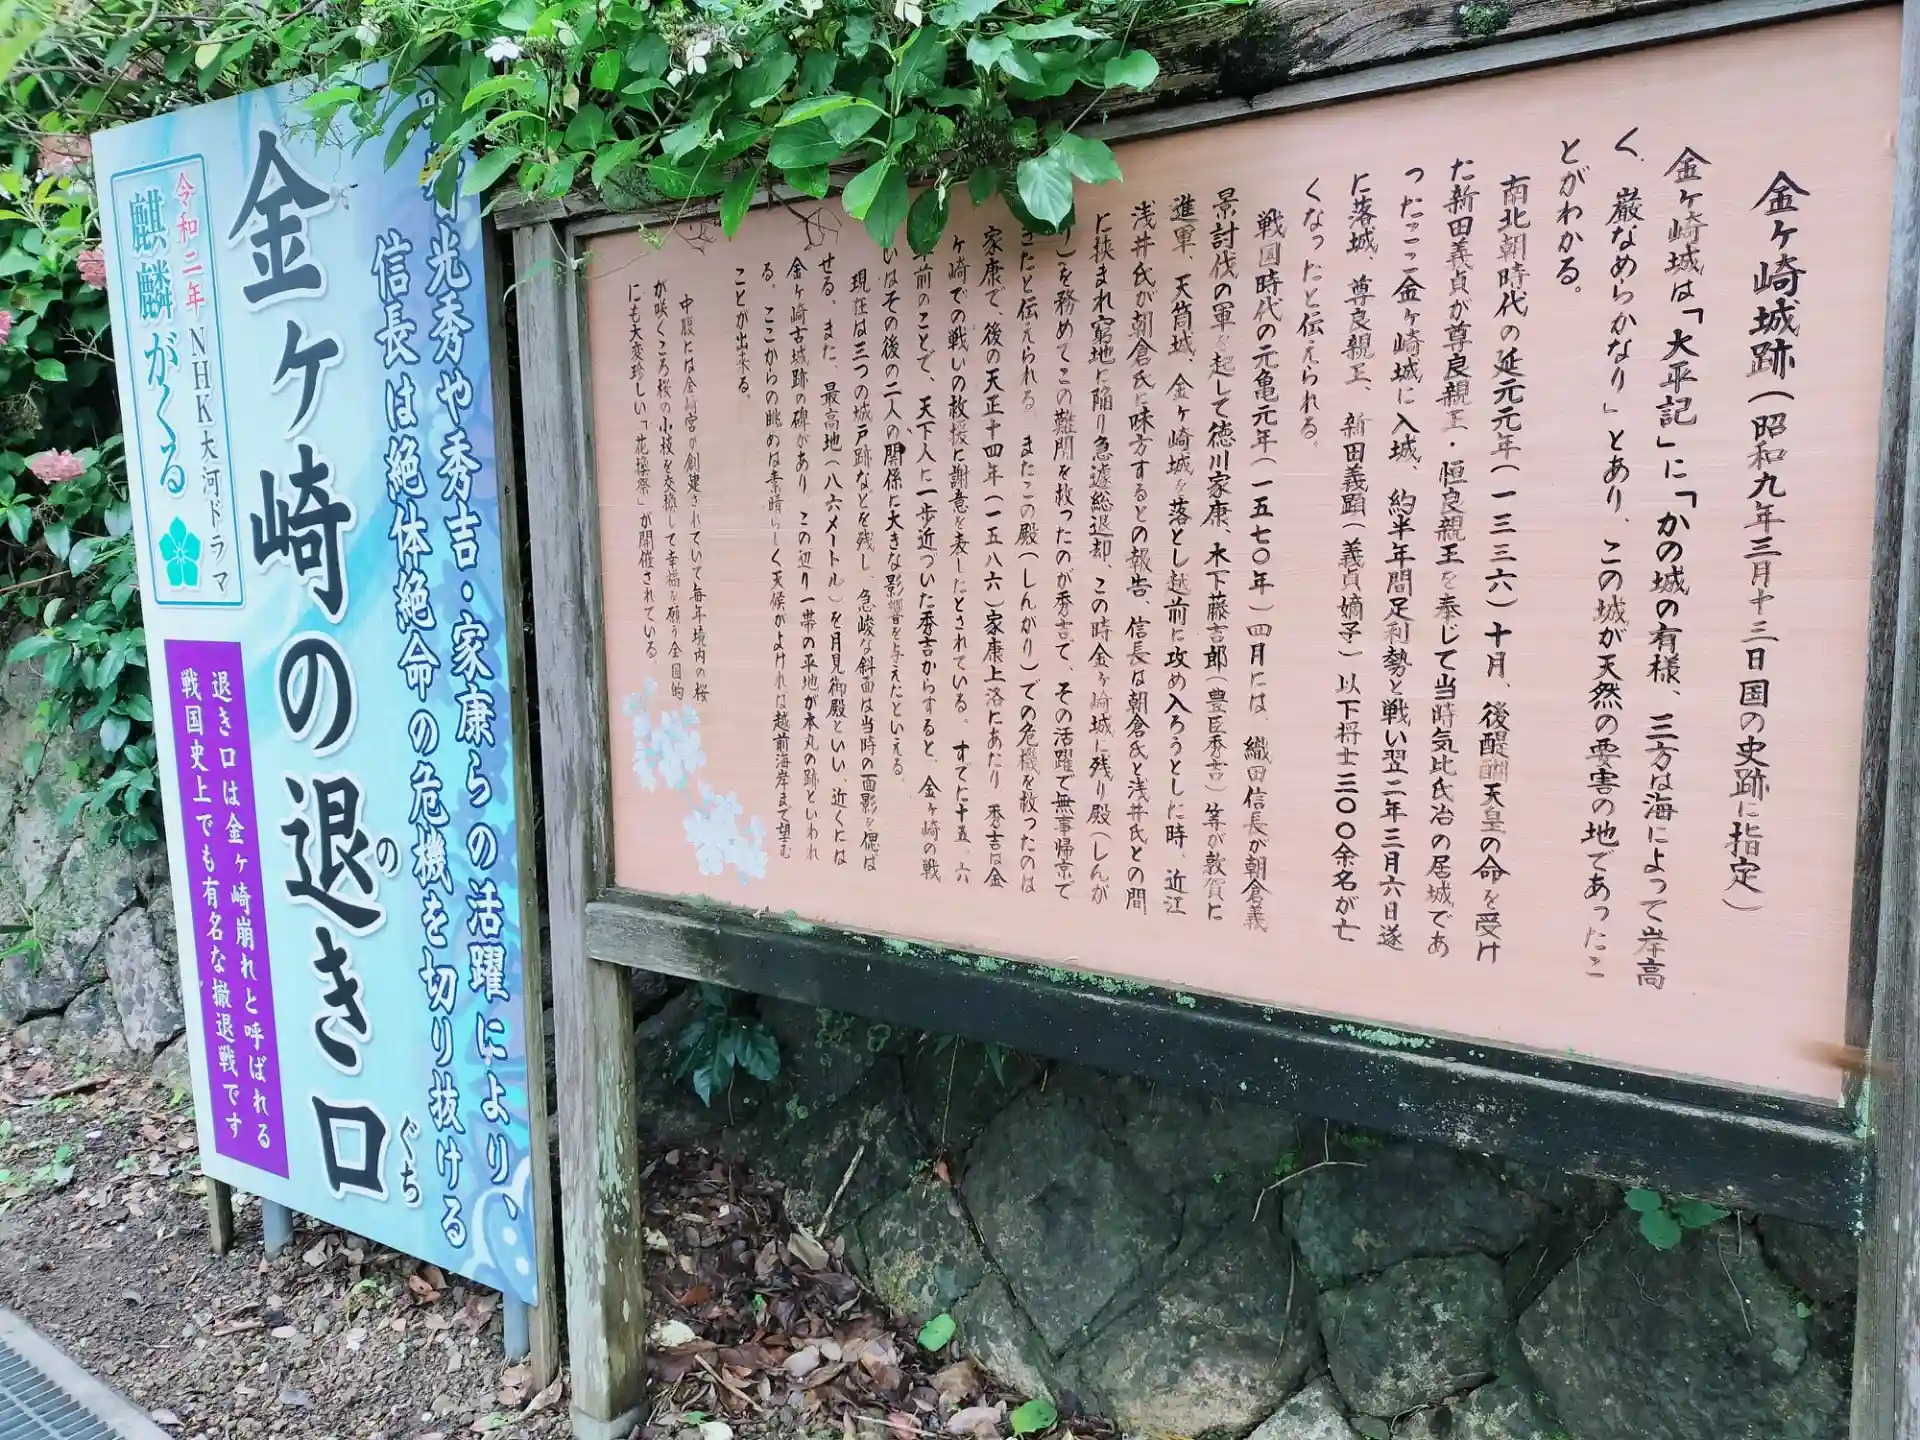 金ヶ崎城跡(昭和九年三月十三日国の史跡に指定)
金ヶ崎城は「太平記」に「かの城の有様、三方は海によって岸高
く、巌なめらかなり」とあり、この城が天然の要害の地であったこ
とがわかる。
南北朝時代の延元元年(一三三六)十月、後醍醐天皇の命を受け
た新田義貞が尊良親王・恒良親王を奉じて当時気比氏治の居城であ
ったここ金ヶ崎城に入城、約半年間足利勢と戦い翌二年三月六日遂
に落城、尊良親王、新田義顕(義貞嫡子)以下将士三〇〇余名が亡
くなったと伝えられる。
戦国時代の元亀元年(一五七〇年)四月には、織田信長が朝倉義
景討伐の軍を起して徳川家康、木下藤吉郎(豊臣秀吉)等が敦賀に
進軍、天筒城、金ヶ崎城を落とし越前に攻め入ろうとした時、近江
浅井氏が朝倉氏に味方するとの報告、信長は朝倉氏と浅井氏との間
に挟まれ窮地に陥り急遽総退却、この時金ヶ崎城に残り殿(しんが
り)を務めてこの難関を救ったのが秀吉で、その活躍で無事帰京で
きたと伝えられる。またこの殿(しんがり)での危機を救ったのは
家康で、後の天正十四年(一五八六)家康上洛にあたり、秀吉は金
ヶ崎での戦いの救援に謝意を表したとされている。すでに十五、六
年前のことで、天下人に一歩近づいた秀吉からすると、金ヶ崎の戦
いはその後の二人の関係に大きな影響を与えたといえる。
現在は三つの城戸跡などを残し、急峻な斜面は当時の面影を偲ば
せる。また、最高地(八六メートル)を月見御殿といい、近くには
金ヶ崎古城跡の碑があり、この辺り一帯の平地が本丸の跡といわれ
る。ここからの眺めは素晴らしく天候がよければ越前海岸まで望む
ことが出来る。
中腹には金崎宮が創建されていて毎年境内の桜
が咲くころ桜の小枝を交換して幸福を願う全国的
にも大変珍しい「花換祭」が開催されている。
光秀や秀吉・家康らの活躍により、
信長は絶体絶命の危機を切り抜ける
金ヶ崎の退き口
の
ぐち
令和二年NHK大河ドラマ
麒麟がくる
退き口は金ヶ崎崩れと呼ばれる
戦国史上でも有名な撤退戦です